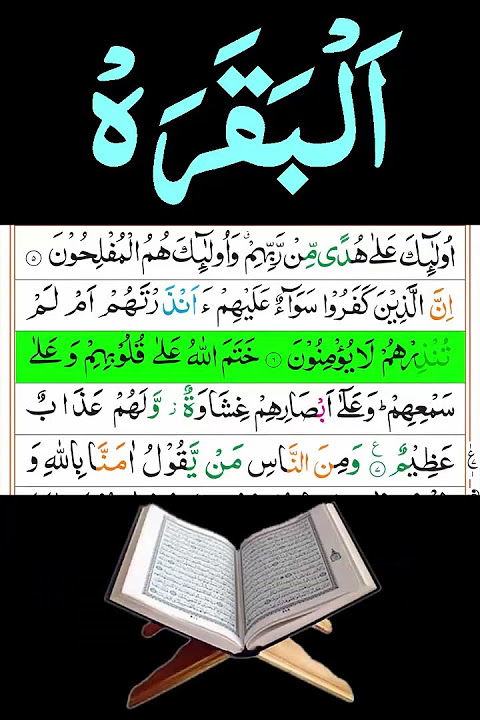 اَلْبَقَرَهْ
اُولٰٓئِكَ عَلٰى هُدًى مِّنْ رَّبِّهِمْ ۙ وَاُولٰٓئِكَ هُمُ الْمُفْلِحُوْنَ ۵
اِنَّ الَّذِيْنَ كَفَرُوْا سَوَآءٌ عَلَيْهِمْ ءَاَنْذَرْتَهُمْ اَمْ لَمْ
تُنْذِرْهُمْ لَا يُؤْمِنُوْنَ ۶ خَتَمَ اللّٰهُ عَلٰى قُلُوْبِهِمْ وَعَلٰى
سَمْعِهِمْ ؕ وَعَلٰٓى اَبْصَارِهِمْ غِشَاوَةٌ ز وَّلَهُمْ عَذَابٌ
عَظِيْمٌ ۷ ع وَمِنَ النَّاسِ مَنْ يَّقُوْلُ اٰمَنَّا بِاللّٰهِ وَ